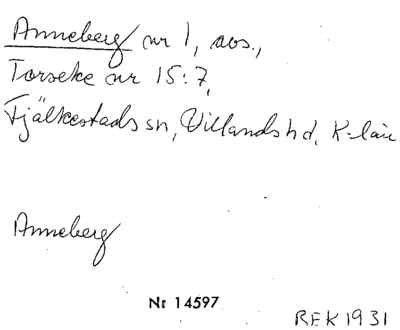 Anneberg nr 1, avs.,
Torseke nr 15:7,
Fjälkestads sn, Villands hd, K-län
Anneberg
Nr 14597
REK 1931